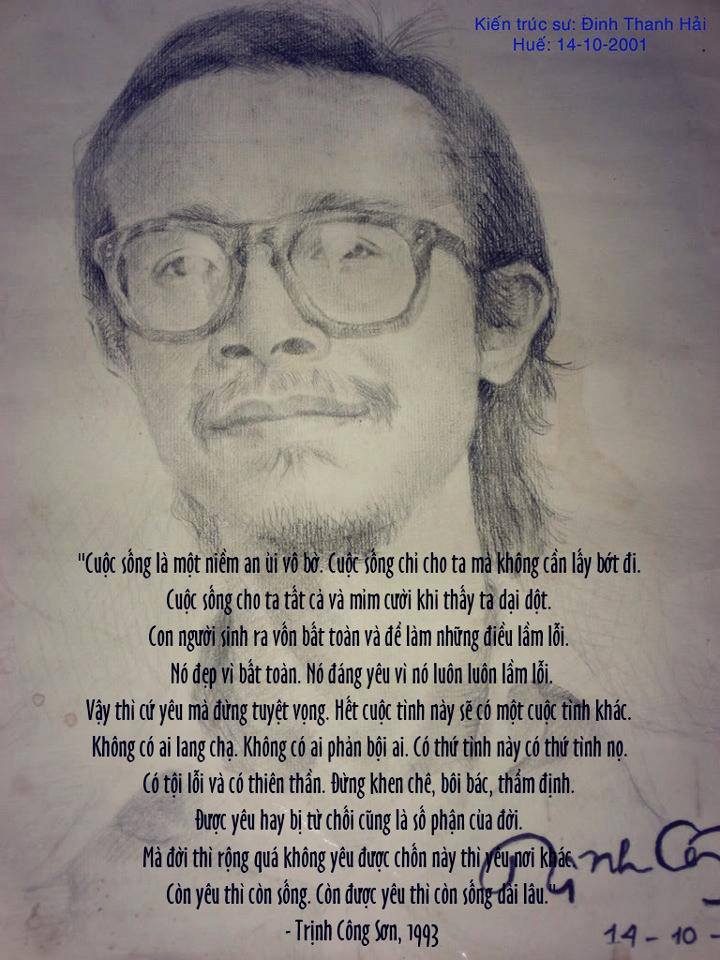 Kiến trúc sư: Đinh Thanh Hải
Huế: 14-10-2001
"Cuộc sống là một niềm an ủi vô bờ. Cuộc sống chỉ cho ta mà không cần lấy bớt đi.
Cuộc sống cho ta tất cả và mỉm cười khi thấy ta dại dột.
Con người sinh ra vốn bất toàn và để làm những điều lầm lỗi.
Nó đẹp vì bất toàn. Nó đáng yêu vì nó luôn luôn lầm lỗi.
Vậy thì cứ yêu mà đừng tuyệt vọng. Hết cuộc tình này sẽ có một cuộc tình khác.
Không có ai lang chạ. Không có ai phản bội ai. Có thứ tình này có thứ tình nọ.
Có tội lỗi và có thiên thần. Đừng khen chê, bôi bác, thẩm định.
Được yêu hay bị từ chối cũng là số phận của đời.
Mà đời thì rộng quá không yêu được chốn này thì yêu nơi khác.
Còn yêu thì còn sống. Còn được yêu thì còn sống dài lâu."
- Trịnh Công Sơn, 1993
14-10-